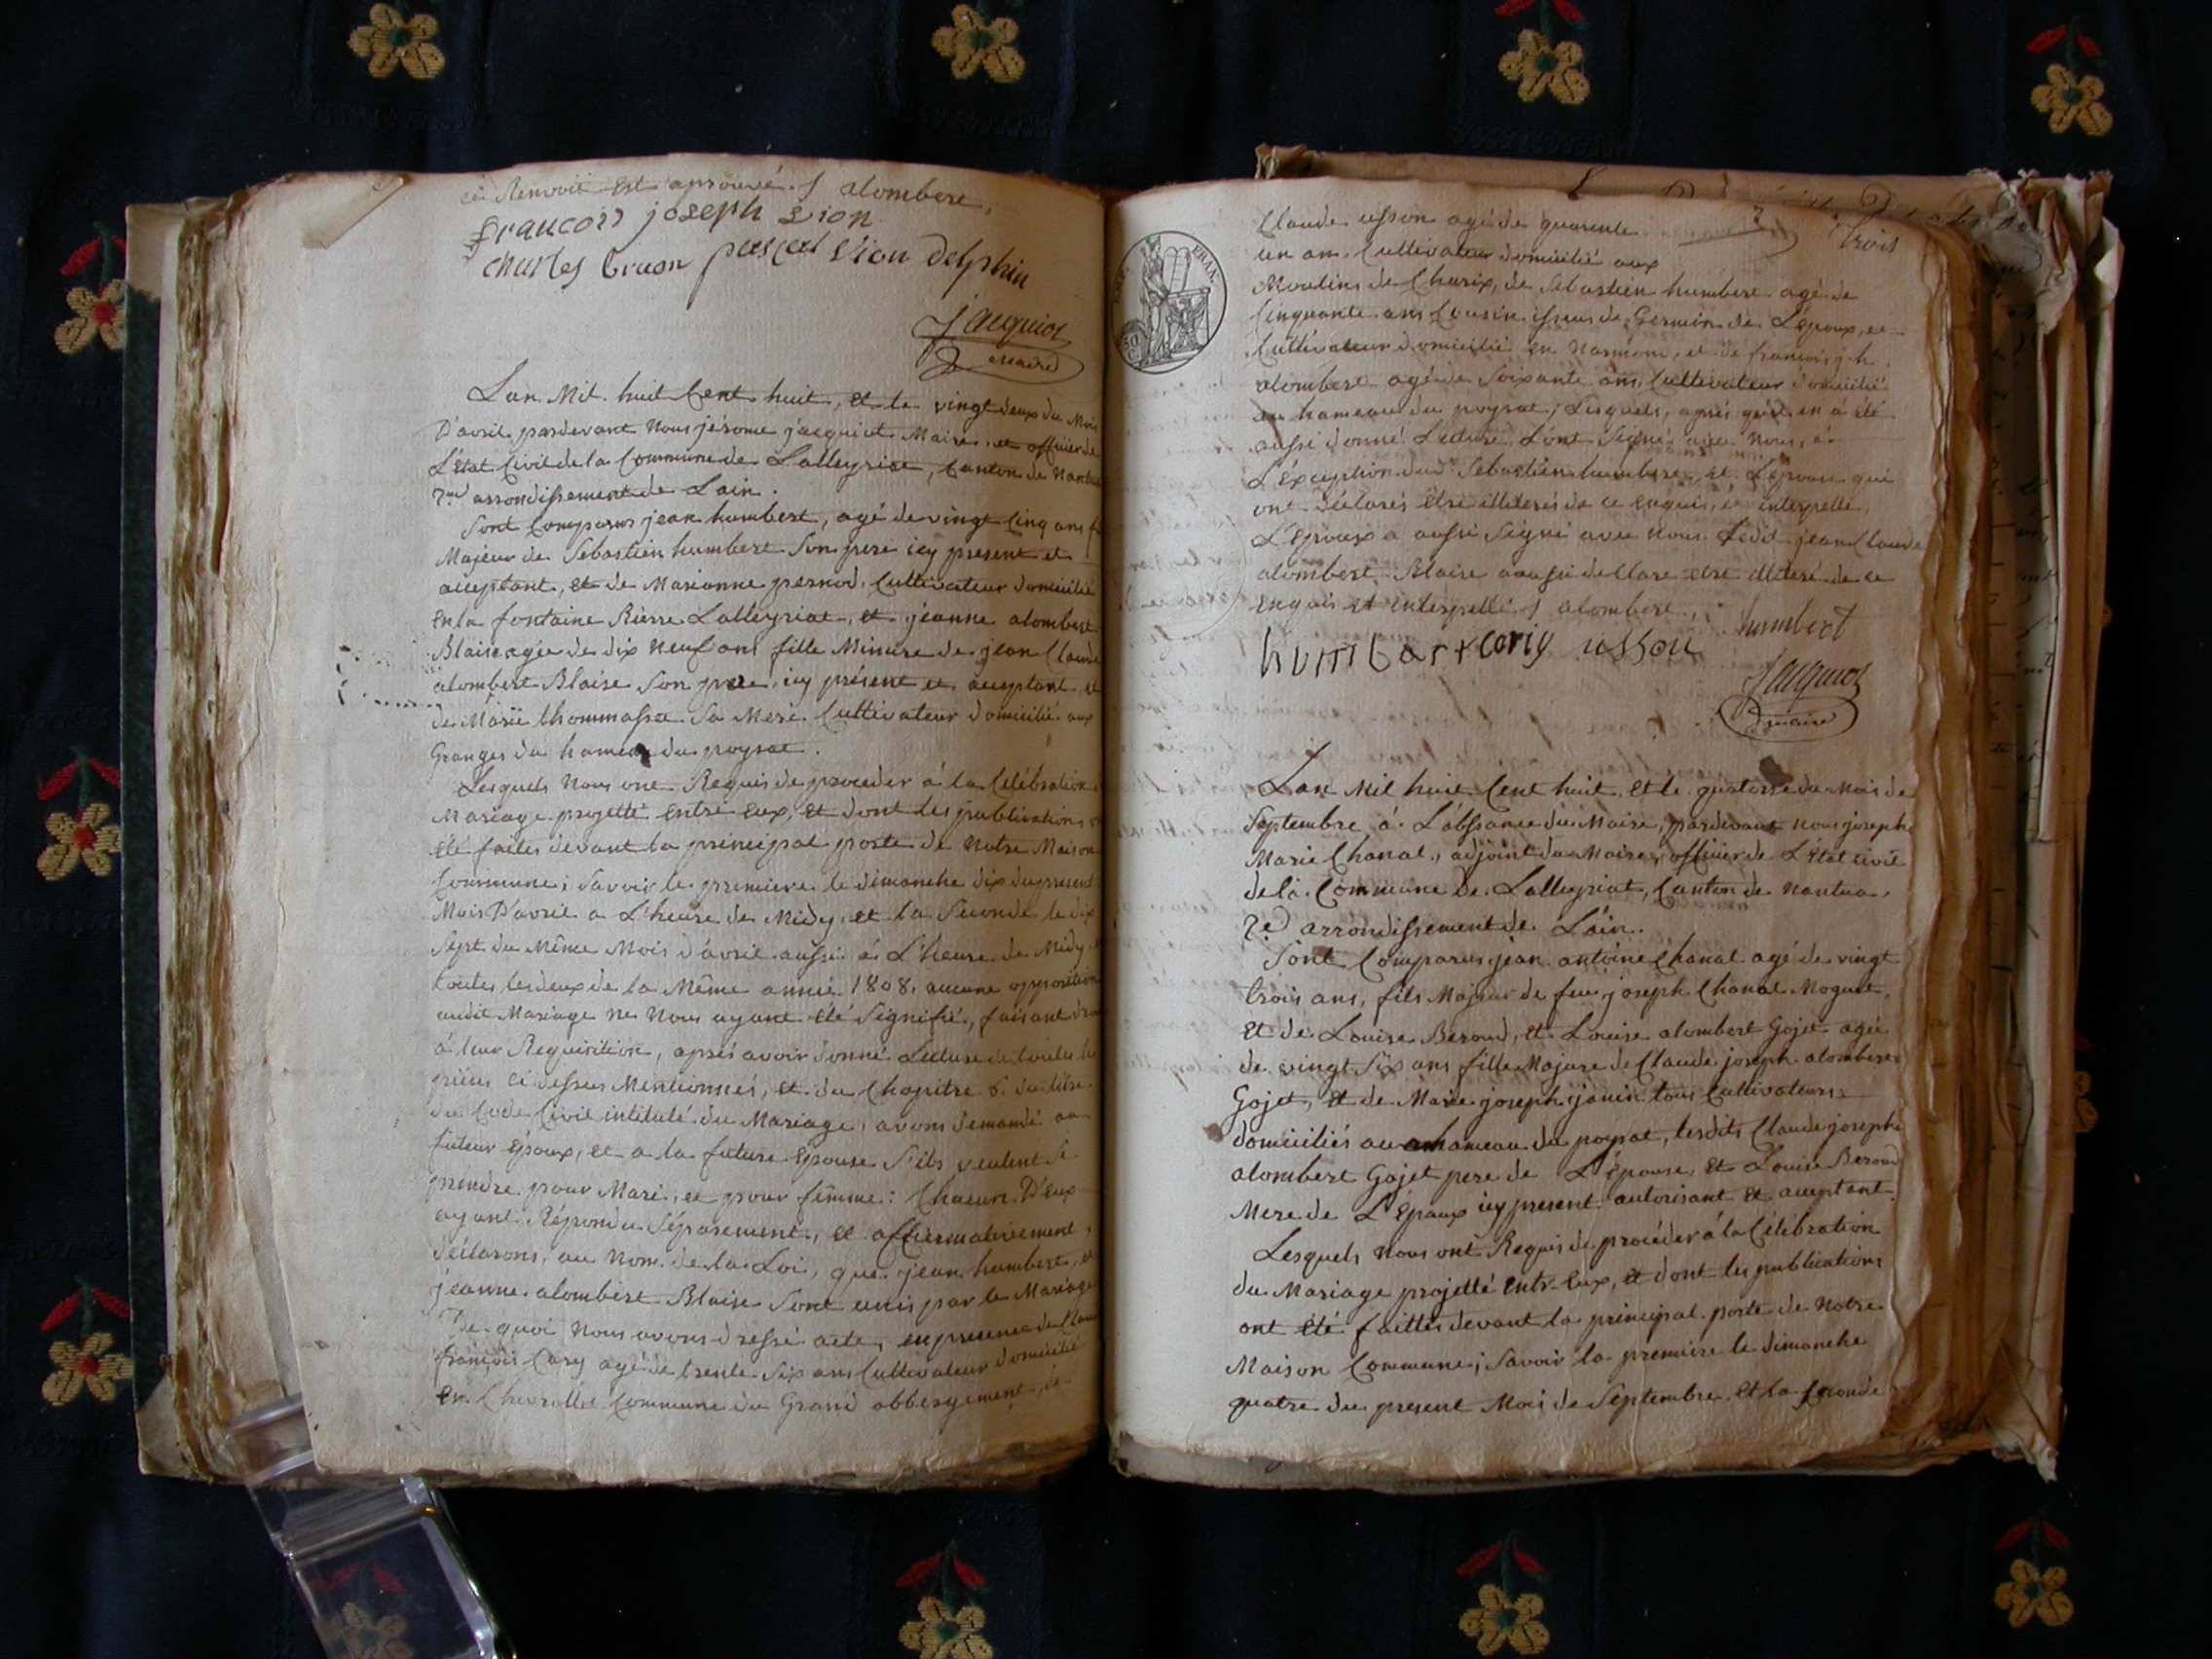 ce Renvoit est aprouvé. f alombert,
francois joseph Lion
Charles bruon pascal Lion Delphin
Jacquiot
Maire
Lan Mil huit Cent huit, et le vingt deux du Mois
D'avril pardevant Nous jérome jacquiot Maire et officier de
L'état Civil de la Commune de Lalleyriat, Canton de Nantua
2me arrondissement de Lain.
Sont Comparus jean humbert, agé de vingt cinq ans
Majeur de Sebastien humbert son pere icy present et
acceptant, et de Marianne pernod, Cultivateur domicilié
En la fontaine Rierre Lalleyriat, et jeanne alombert
Blaise agée de dix neuf ans fille Mineure de jean Claude
alombert Blaise son pere, icy présent et acceptant et
de Marie thommasset Sa Mere Cultivateur domicilié aux
Granges du hameau du poysat.
Lesquels Nous ont Requis de proceder à la Célébration
Mariage projetté entre eux, et dont les publications
été faites devant la principal porte de Notre Maison
Commune; Savoir le premiere le dimanche dix du present
Mois D'avril a L'heure de Midy, et la Seconde le dix
Sept du Même Mois d'avril aussi à L'heure de Midy
toutes les deux de la Même année 1808, aucune opposition
audit Mariage ne Nous ayant été Signifié, faisant droit
à leur Requisition, après avoir donné Lecture de toutes les
pièces ci dessus Mentionnés, et du Chapitre 6. du titre
du Code Civil intitulé du Mariage, avons demandé au
futeur époux, et a la future épouse S'ils veulent se
prendre pour Mari, et pour fémme: Chacun D'eux
ayant Répondu Séparement, et affirmativement,
déclarons, au Nom de la Loi, que jean humbert, et
jeanne alombert Blaise Sont unis par le Mariage
De quoi Nous avons dressé acte, en presence de
françois Cary agé de trente Six ans Cultivateur domicilié
en Chevrelle Commune du Grand abbergement, de
trois
Claude usson agé de quarente
un an Cultivateur domicilié aux
Moulins de Charix, de Sébastien humbert agé de
Cinquante ans Cousin issus de Germin de L'époux, et
Cultivateur domicilié en et de françois jh
alombert agé de Soixante ans Cultivateur domicilié
au hameau du poysat, Lesquels, après qu'il en à été
aussi donné Lecture L'ont Signé avec Nous, à
L'éxception dud Sébastien humbert, et L'épouse qui
ont déclarés être illiterés de ce enquis, et interpellé,
L'époux a aussi Signé avec Nous. Ledit jean Claude
alombert Blaise a aussi declare etre illiteré de ce
enquis et interpellé f alombert humbert
humbart cariy usson
Jacquiot
maire
Lan Mil huit Cent huit, et le quatorze du Mois de
Septembre à L'absance du Maire, pardevant Nous joseph
Marie Chanal, adjoint du Maire, officier de L'état civil
de la Commune De Lalleyriat, Canton de Nantua,
2e arrondissement de Láin.
Sont Comparus jean antoine Chanal agé de vingt
trois ans, fils Majeur de feu joseph Chanal Moguet,
et de Louise Beroud, et Louise alombert Gojet agée
de vingt Six ans fille Majure de Claude joseph alombert
Gojet, et de Marie joseph janin tous Cultivateurs
domiciliés au hameau du poysat, lesdits Claude joseph
alombert Gojet pere de L'épouse, et Louise Beroud
Mere de L'époux icy present autorisant et acceptant.
Lesquels Nous ont Requis de proceder à la Célébration
du Mariage projetté entr-eux, et dont les publications
ont été faittes devant la principal porte de Notre
Maison Commune; Savoir la premiere le dimanche
quatre du present Mois de Septembre et la Seconde